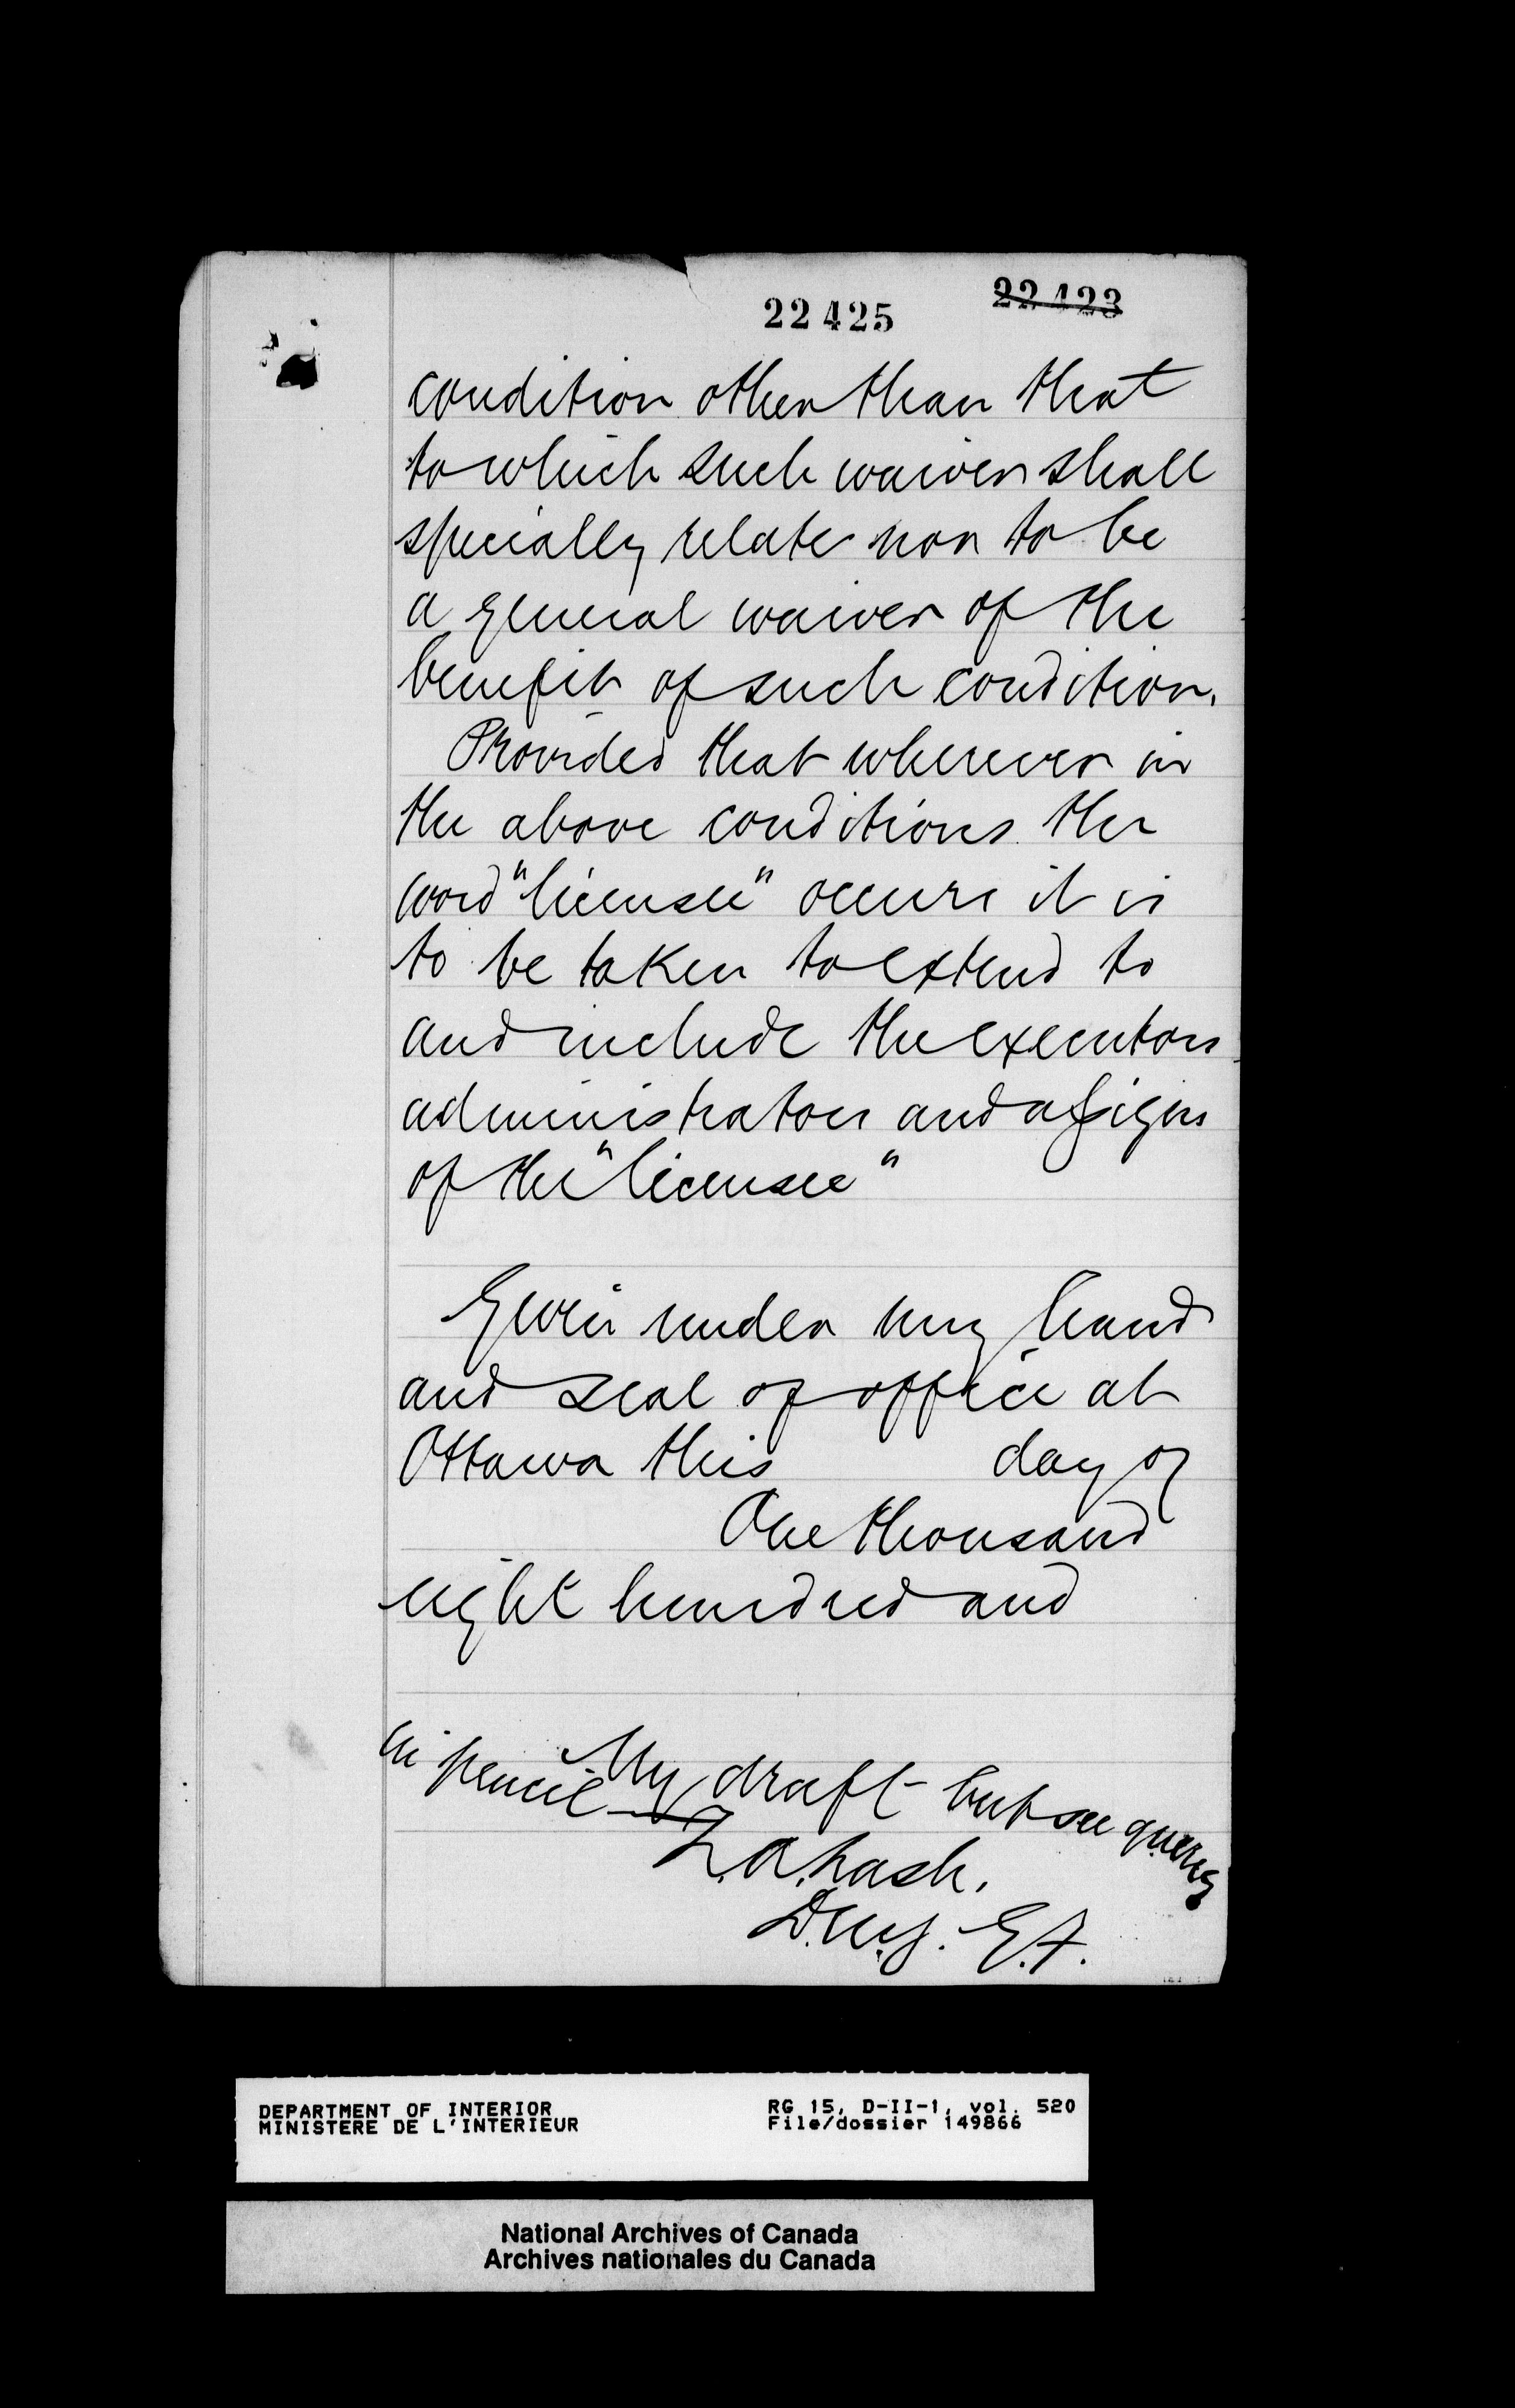 22425 22423
condition other than that
to which such waiver shall
specially relate nor to be
a general waiver of the
benefit of such condition.
Provided that wherever in
the above conditions the
word "licensee" occurs it is
to be taken to extend to
and include the executors
administrators and assigns
of the "licensee"
Given under my hand
and seal of office at
Ottawa this day of
One thousand
eight hundred and
My draft but see query
in pencil
DEPARTMENT OF INTERIOR
MINISTERE DE L'INTERIEUR
RG 15, D-II-1, vol. 520
File/dossier 149866
National Archives of Canada
Archives nationales du Canada